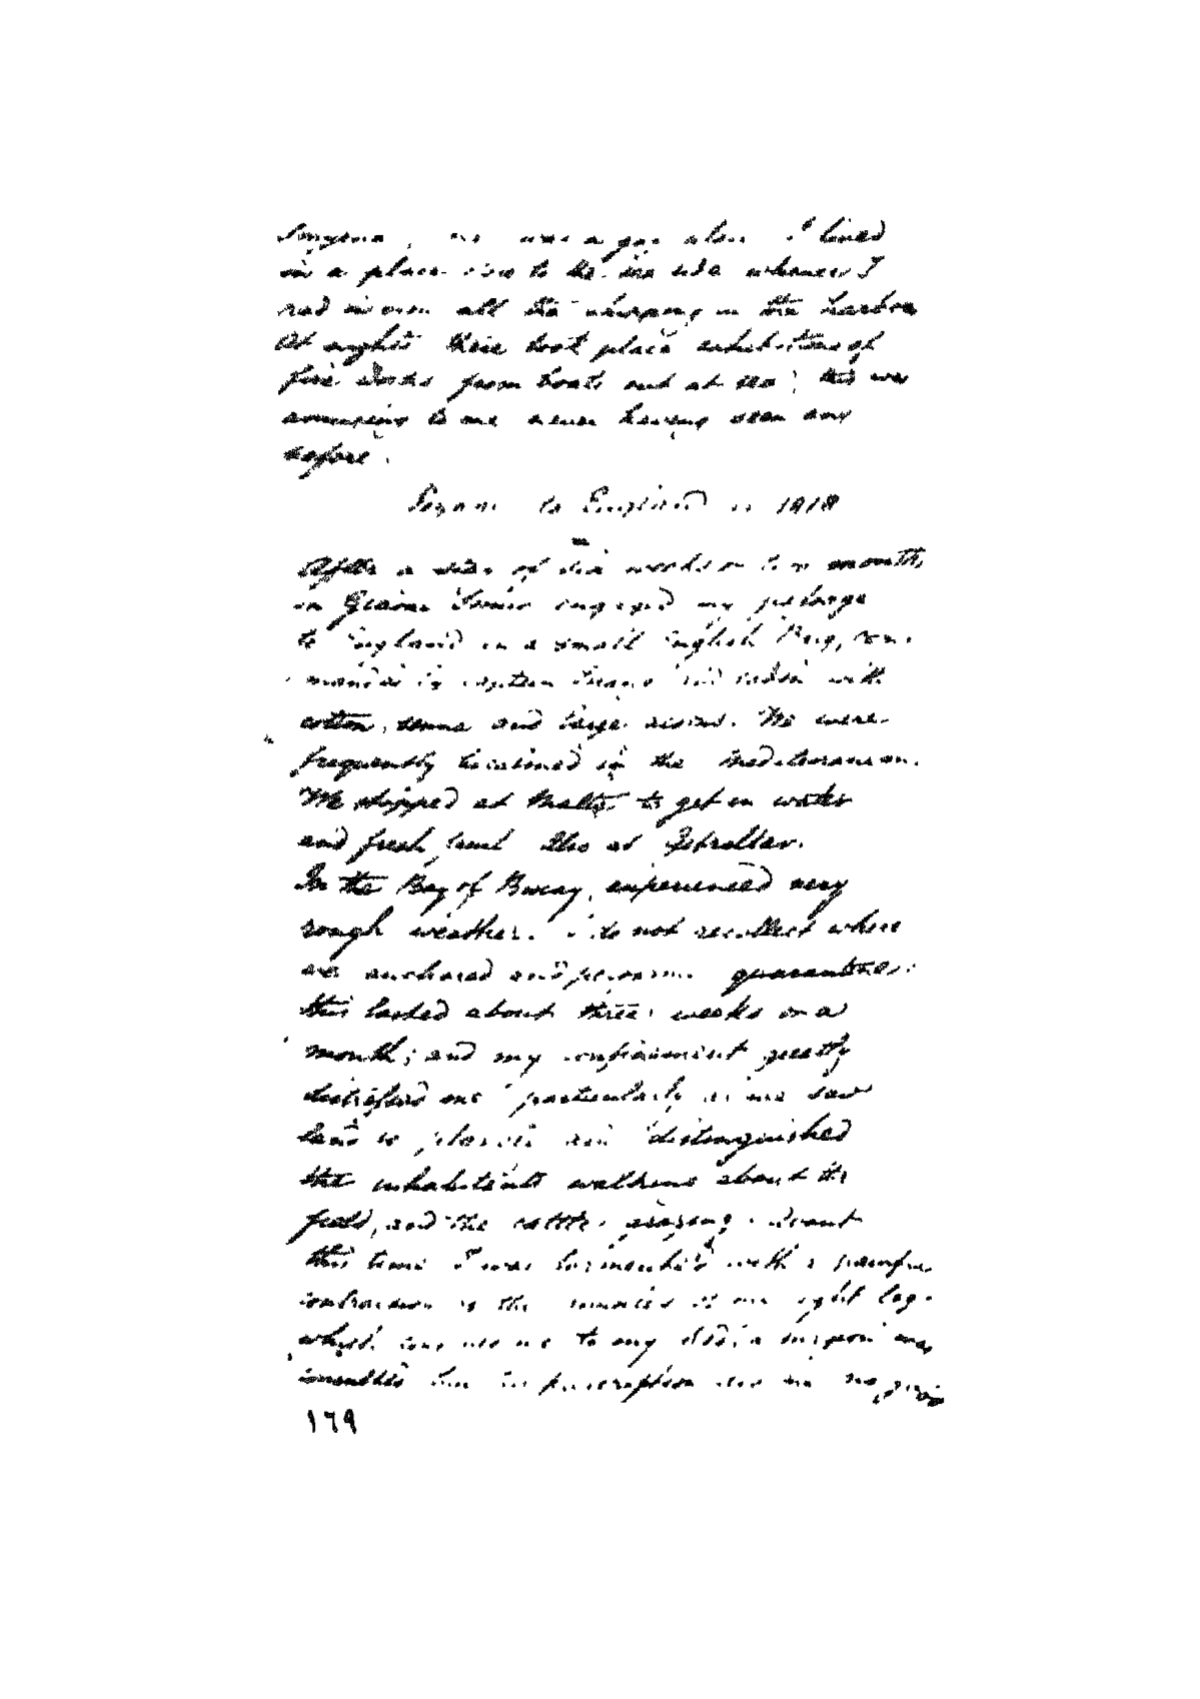 Smyrna, was a gay place I lived
in a place close to the sea side whence I
had in view all the shipping in the harbor
At nights there took place exhibitions of
fire works from boats out at sea; this was
amusing to me never having seen any
before.
Smyrna to England in 1818
After a stay of six weeks or two months
in Smyrna engaged my passage
to England in a small English Brig, com
manded by captain and laden with
cotton, and. We were
frequently becalmed in the Mediterranean.
We stopped at Malta to get in water
and fresh also at Gibraltar.
In the Bay of Biscay, experienced very
rough weather. I do not recollect where
we anchored and quarantine.
this lasted about three weeks or a
month; and my confinement greatly
distressed me particularly as we saw
land so and distinguished
the inhabitants walking about the
field, and the cattle grazing. About
this time I was tormented with a painful
contraction of the muscles of my right leg.
which me to my bed; a surgeon was
consulted but his prescription me no
179